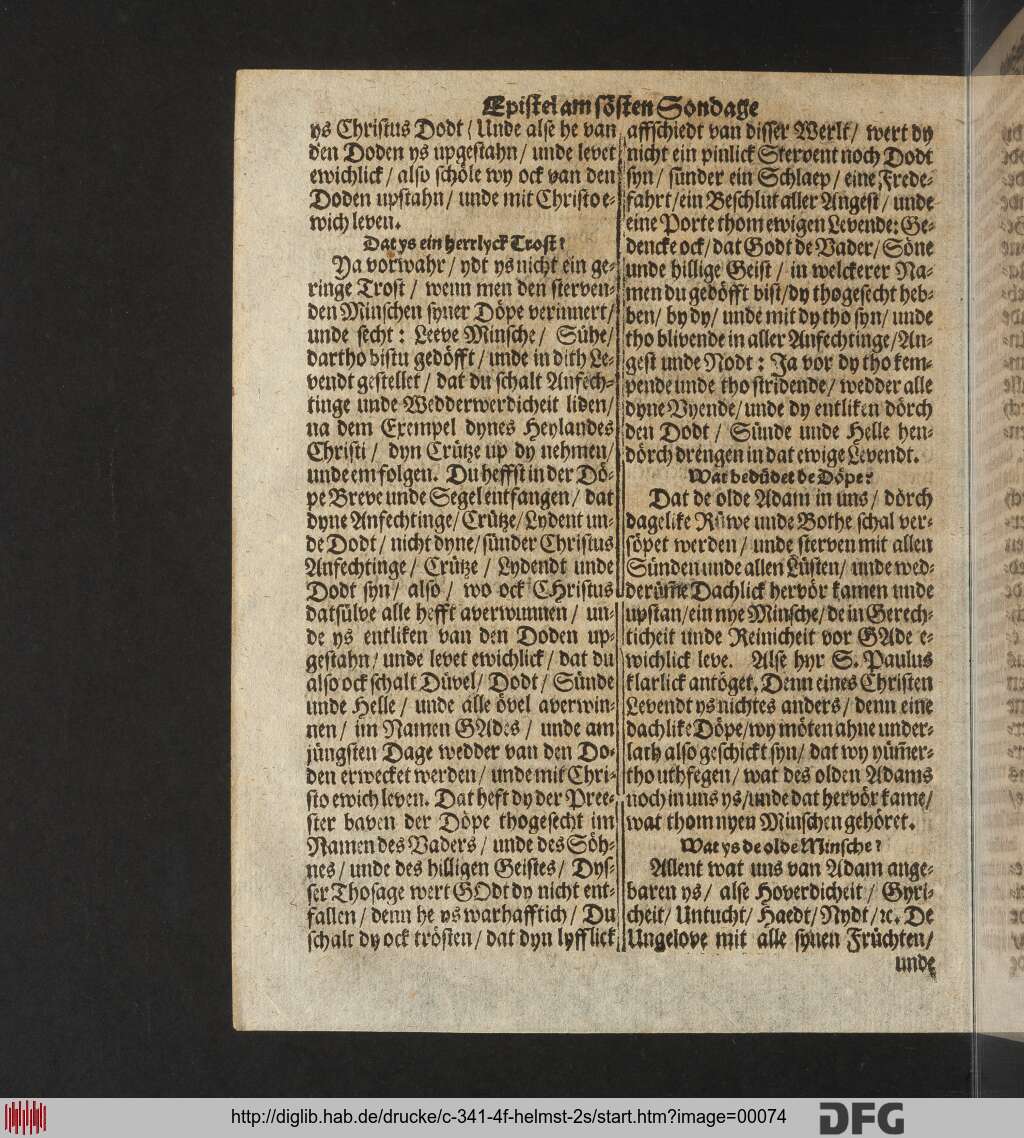 Epistel am sösten Sondage
ys Christus Dodt / Unde alse he van
den Doden ys upgestahn / unde levet
ewichlick / also schöle wy ock van den
Doden upstahn / unde mit Christo e-
wich leven.
Dat ys ein herrlyck Trost?
Ya vorwahr / ydt ys nicht ein ge-
ringe Trost / wenn men den sterven-
den Minschen syner Döpe verinnert /
unde secht: Leeve Minsche / Sühe /
dartho bistu gedöfft / unde in dith Le-
vendt gestellet / dat du schalt Anfech-
tinge unde Wedderwerdicheit liden /
na dem Exempel dynes Heylandes
Christi / dyn Crütze up dy nehmen /
unde em folgen. Du heffst in der Dö-
pe Breve unde Segel entfangen / dat
dyne Anfechtinge / Crütze / Lydent un-
de Dodt / nicht dyne / sünder Christus
Anfechtinge / Crütze / Lydendt unde
Dodt syn / also / wo ock CHristus
datsülve alle hefft averwunnen / un-
de ys entliken van den Doden up-
gestahn / unde levet ewichlick / dat du
also ock schalt Düvel / Dodt / Sünde
unde Helle / unde alle övel averwin-
nen / im Namen GAdes / unde am
jüngsten Dage wedder van den Do-
den erwecket werden / unde mit Chri-
sto ewich leven. Dat heft dy der Pree-
ster baven der Döpe thogesecht im
Namen des Vaders / unde des Söh-
nes / unde des hilligen Geistes / Dys-
ser Thosage wert GOdt dy nicht ent-
fallen / denn he ys warhafftich / Du
schalt dy ock trösten / dat dyn lyfflick
affschiedt van disser Werlt / wert dy
nicht ein pinlick Stervent noch Dodt
syn / sünder ein Schlaep / eine Frede-
fahrt / ein Beschlut aller Angest / unde
eine Porte thom ewigen Levende: Ge-
dencke ock / dat Godt de Vader / Söne
unde hillige Geist / in welckerer Na-
men du gedöfft bist / dy thogesecht heb-
ben / by dy / unde mit dy tho syn / unde
tho blivende in aller Anfechtinge / An-
gest unde Nodt: Ja vor dy tho kem-
pende unde tho stridende / wedder alle
dyne Vyende / unde dy entliken dörch
den Dodt / Sünde unde Helle hen-
dörch drengen in dat ewige Levendt.
Wat bedüdet de Döpe?
Dat de olde Adam in uns / dörch
dagelike Rüwe unde Bothe schal ver-
söpet werden / unde sterven mit allen
Sünden unde allen Lüsten / unde wed-
derüm̃e Dachlick hervör kamen unde
upstan / ein nye Minsche / de in Gerech-
ticheit unde Reinicheit vor GAde e-
wichlick leve. Alse hyr S. Paulus
klarlick antöget. Denn eines Christen
Levendt ys nichtes anders / denn eine
dachlike Döpe / wy möten ahne under-
lath also geschickt syn / dat wy yüm̃er-
tho uthfegen / wat des olden Adams
noch in uns ys / unde dat hervör kame /
wat thom nyen Minschen gehöret.
Wat ys de olde Minsche?
Allent wat uns van Adam ange-
baren ys / alse Hoverdicheit / Gyri-
cheit / Untucht / Haedt / Nydt / ꝛc. De
Ungelove mit alle synen Früchten /
unde
http://diglib.hab.de/drucke/c-341-4f-helmst-2s/start.htm?image=00074
DFG